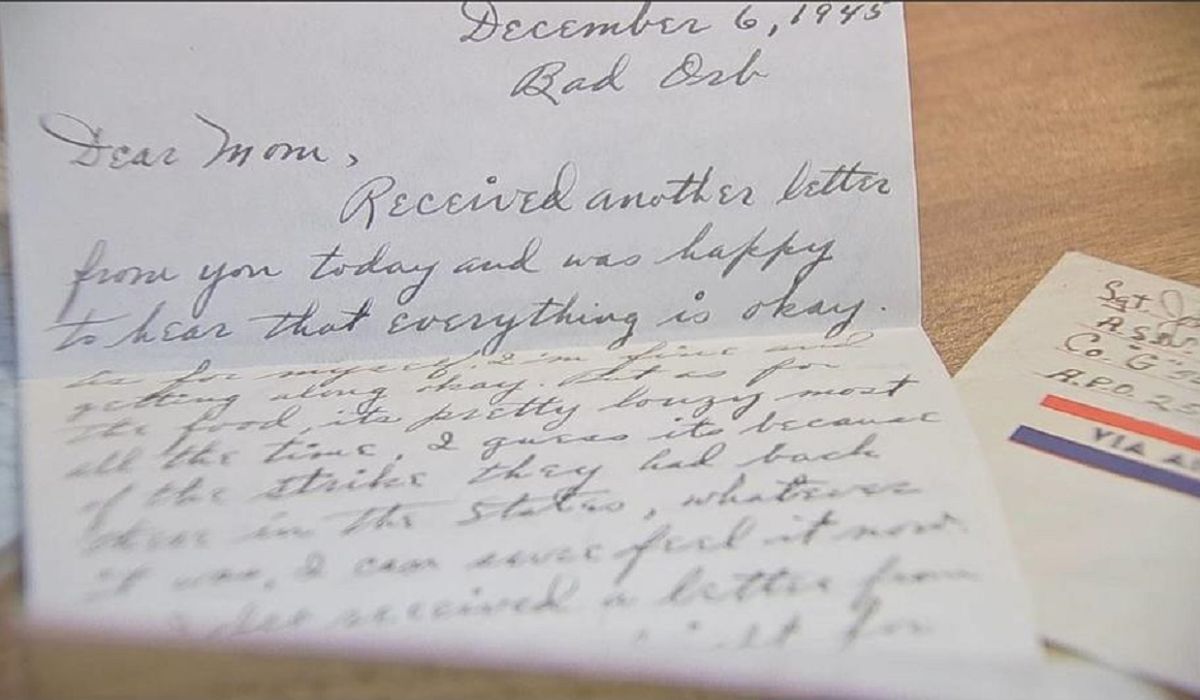 December 6, 1945
Bad Orb
Dear Mom,
Received another letter
from you today and was happy
to hear that everything is okay.
As for myself, I'm fine and
getting along okay. But as for
the food, its pretty louzy most
all the time, I guess its because
of the strike they had back
there in the States, whatever
it was, I can sure feel it now.
I also received a letter from
it for
Sgt.
Co. "G"
A.P.O.
VIA